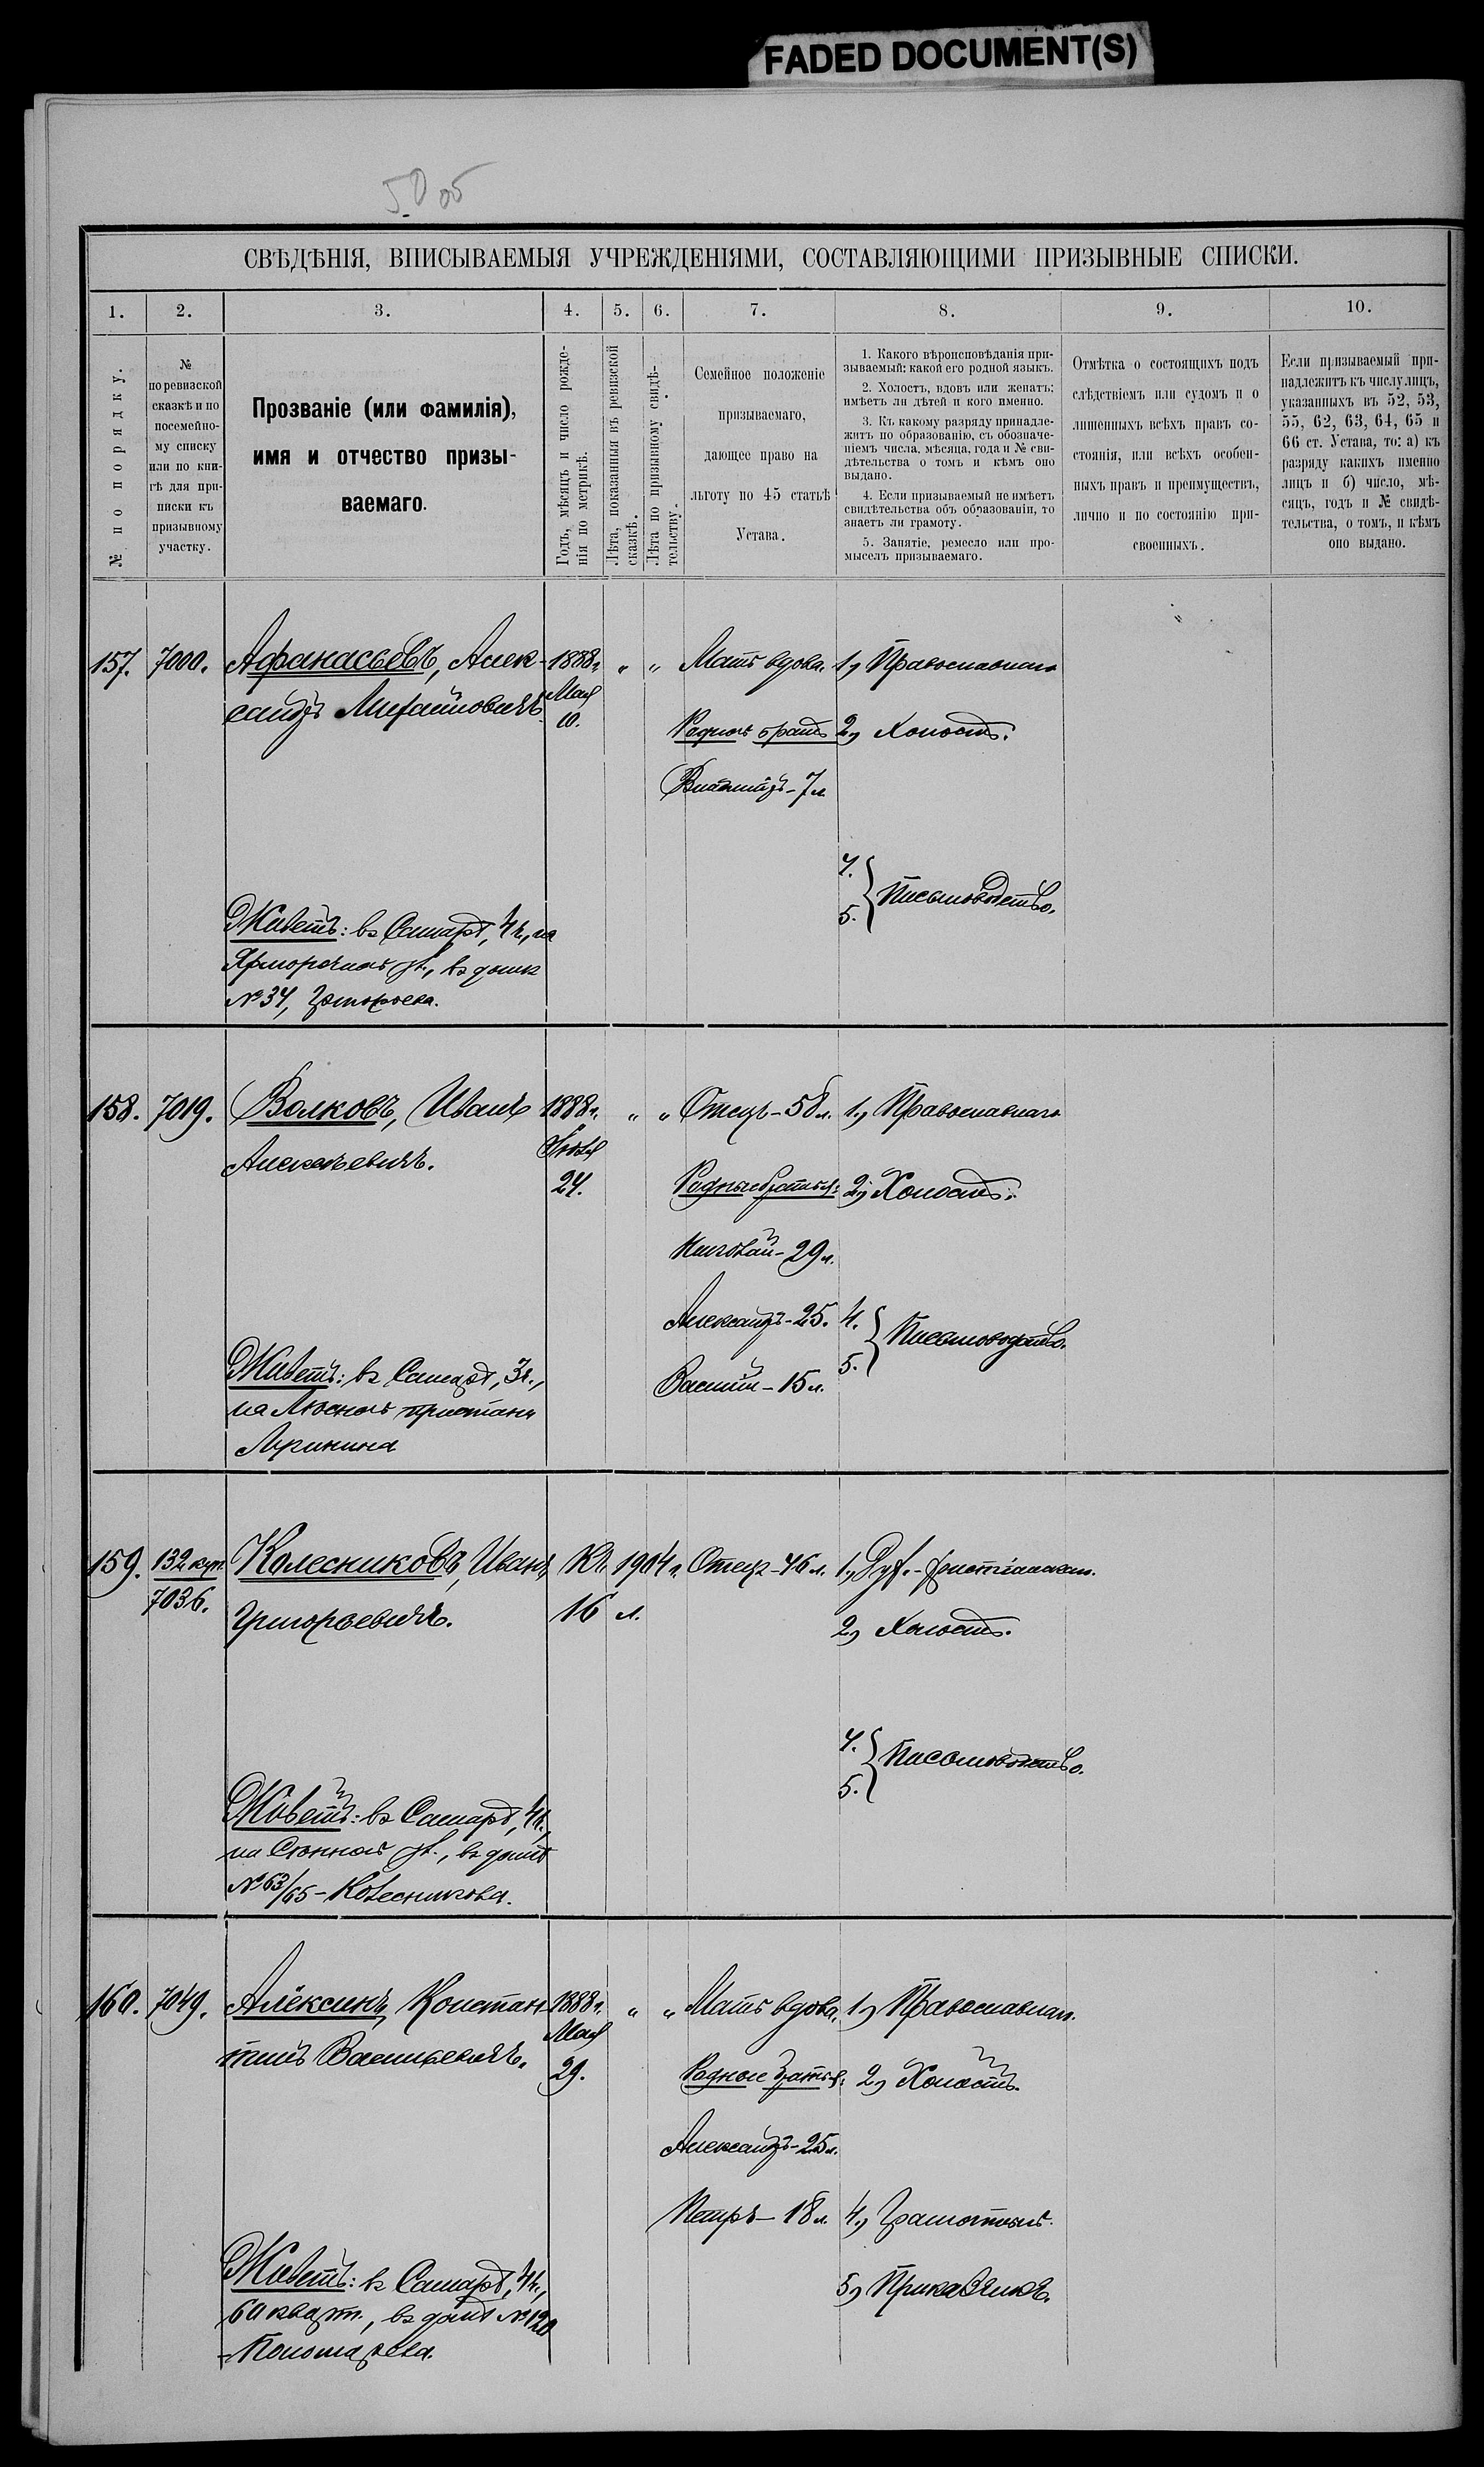 FADED DOCUMENT(S)
50 об
СВѢДѢНІЯ, ВПИСЫВАЕМЫЯ УЧРЕЖДЕНІЯМИ, СОСТАВЛЯЮЩИМИ ПРИЗЫВНЫЕ СПИСКИ.
1. 2. 3. 4. 5. 6. 7. 8. 9. 10.
№ по порядку.
№
по ревизской
сказкѣ и по
посемейно-
му списку
или по кни-
гѣ для при-
писки къ
призывному
участку.
Прозваніе (или фамилія),
имя и отчество призы-
ваемаго.
Годъ, мѣсяцъ и число рожде-
нія по метрикѣ.
Лѣта, показанныя въ ревизской
сказкѣ.
Лѣта по призывному свидѣ-
тельству.
Семейное положеніе
призываемаго,
дающее право на
льготу по 45 статьѣ
Устава.
1. Какого вѣроисповѣданія при-
зываемый: какой его родной языкъ.
2. Холостъ, вдовъ или женатъ;
имѣетъ ли дѣтей и кого именно.
3. Къ какому разряду принадле-
житъ по образованію, съ обозначе-
ніемъ числа, мѣсяца, года и № сви-
дѣтельства о томъ и кѣмъ оно
выдано.
4. Если призываемый не имѣетъ
свидѣтельства объ образованіи, то
знаетъ ли грамоту.
5. Занятіе, ремесло или про-
мыселъ призываемаго.
Отмѣтка о состоящихъ подъ
слѣдствіемъ или судомъ и о
лишенныхъ всѣхъ правъ со-
стоянія, или всѣхъ особен-
ныхъ правъ и преимуществъ,
лично и по состоянію при-
своенныхъ.
Если призываемый при-
надлежитъ къ числу лицъ,
указанныхъ въ 52, 53,
55, 62, 63, 64, 65 и
66 ст. Устава, то: а) къ
разряду какихъ именно
лицъ и б) число, мѣ-
сяцъ, годъ и № свидѣ-
тельства, о томъ, и кѣмъ
оно выдано.
157. 7000. Афанасьевъ, Алек- 1888 г. " " Мать вдова. 1) Православнаго
сандръ Михайловичъ Мая
10.
Родной братъ 2) Холостъ.
Владиміръ - 7 л.
4.
5. } Письмоводство.
Живетъ: въ Самарѣ, 4 ч., на
Ярморочной ул., въ домѣ
№ 34,
158. 7019. Волковъ, Иванъ 1888 г. " " Отецъ - 58 л. 1) Православнаго
Алексѣевичъ.
24.
Родные братья: 2) Холостъ.
Николай - 29 л.
Александръ - 25. 4.
5. } Письмоводство.
Василій - 15 л.
Живетъ: въ Самарѣ, 3 ч.,
на Лѣсной пристани
Аринина
159. 132 куп. Колесниковъ, Иванъ Къ 1904 г. Отецъ - 46 л. 1) Дух.-христіанинъ.
7036. Григорьевичъ. 16 л.
2) Холостъ.
4.
5. } Письмоводство.
Живетъ: въ Самарѣ, 4 ч.,
на Сѣнной ул., въ домѣ
№ 63/65 - Колесникова.
160. 7049. Алексинъ, Констан- 1888 г. " " Мать вдова. 1) Православнаго.
тинъ Васильевичъ. Мая
29.
Родные братья: 2) Холостъ.
Александръ - 25 л.
Петръ - 18 л. 4) Грамотный.
5) Приказчикъ.
Живетъ: въ Самарѣ, 4 ч.,
60 кварт., въ домѣ № 120
- Пономарева.